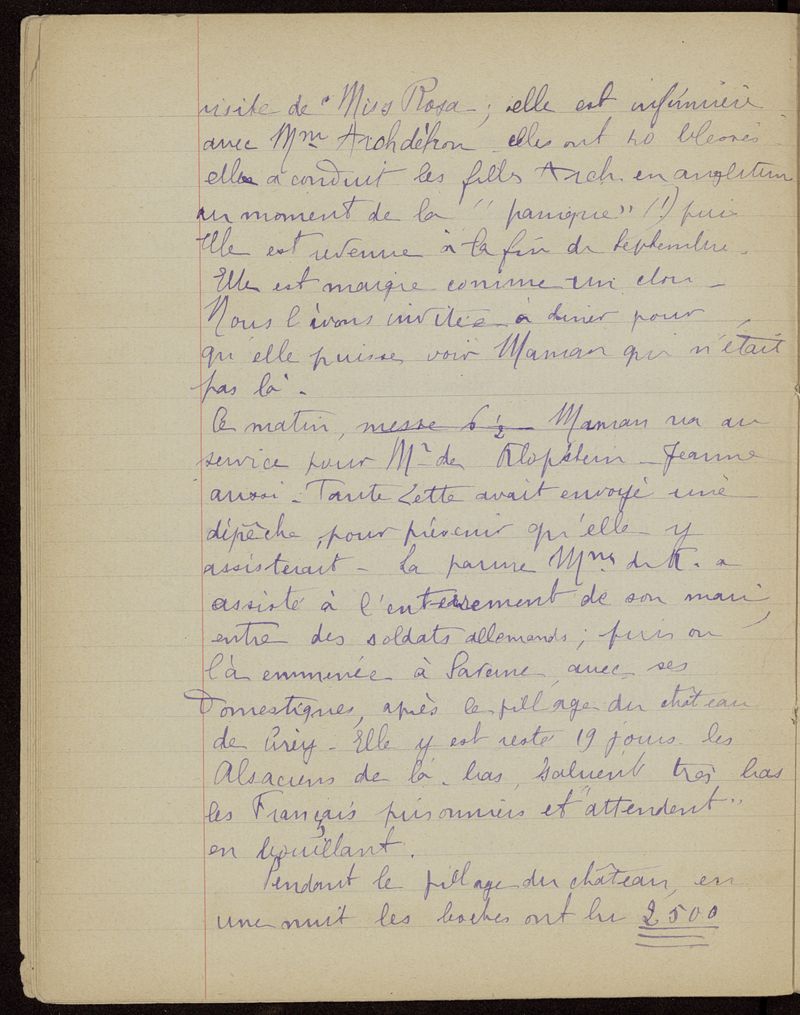 visite de "Miss Rosa ; elle est infirmière
avec Mme Archdékon elles ont 40 blessés
elle a conduit les filles Arch. en angleterre
au moment de la "panique" (!) puis
elle est revenue à la fin de Septembre.
Elle est maigre comme un clou –
Nous l'avons invitée à diner pour
qu'elle puisse voir Maman qui n'était
pas là.
Ce matin, messe 6 ½ Maman va au
service pour Mr de Klopstein – Jeanne
aussi. Tante Lette avait envoyé une
dépêche, pour prévenir qu'elle y
assisterait – La pauvre Mme de K. a
assisté à l'enterrement de son mari,
entre des soldats allemands ; puis on
l'a emmenée à Saverne, avec ses
Domestiques, après le pillage du château
de Cirey – Elle y est resté 19 jours. les
Alsaciens de là-bas, saluent très bas
les Français prisonniers et "attendent"
en bouillant.
Pendant le pillage du château, en
une nuit les boches ont bu 2500